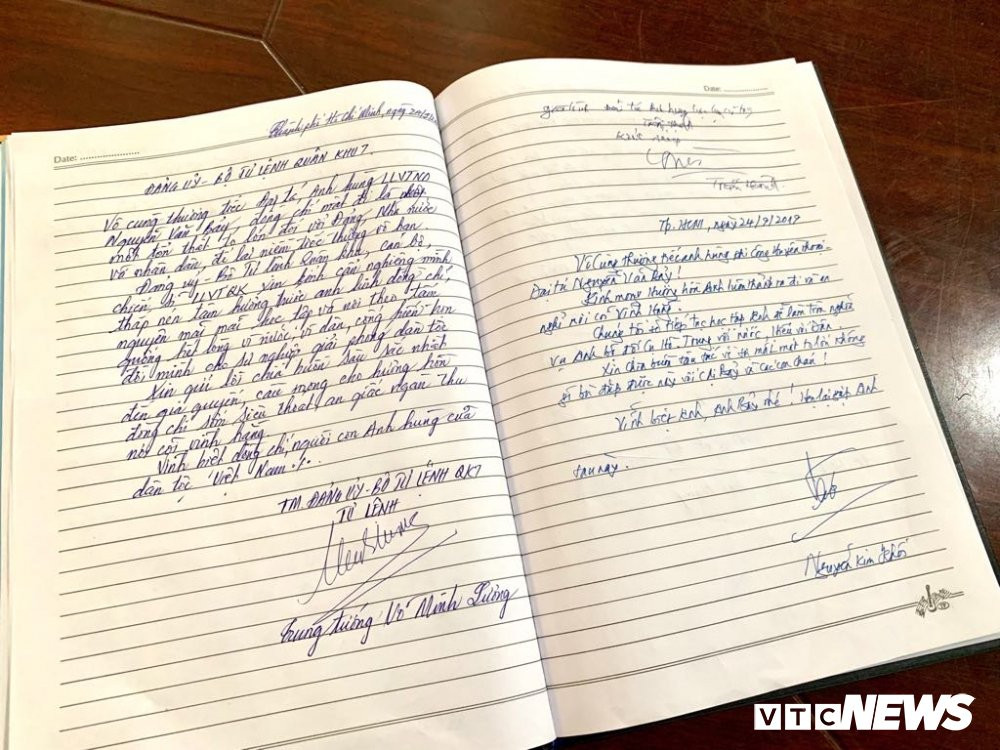 Date:
Thành phố Hồ Chí Minh, ngày
ĐẢNG ỦY - BỘ TƯ LỆNH QUÂN KHU 7.
Vô cùng thương tiếc Đại tá, Anh hùng LLVTND
Nguyễn Văn Bảy, đồng chí mất đi là
một tổn thất to lớn đối với Đảng, Nhà nước
và nhân dân, để lại niềm tiếc thương vô hạn.
Đảng ủy - Bộ Tư lệnh Quân khu, cán bộ,
chiến sĩ LLVT QK xin kính cẩn nghiêng mình
thắp nén tâm hương trước anh linh đồng chí,
nguyện mãi mãi học tập và noi theo tấm
gương hết lòng vì nước, vì dân, cống hiến
đời mình cho sự nghiệp giải phóng dân tộc
Xin gửi lời chia buồn sâu sắc nhất
đến gia quyến, cầu mong cho hương hồn
đồng chí sớm siêu thoát, an giấc ngàn thu
nơi cõi vĩnh hằng.
Vĩnh biệt đồng chí, người con Anh hùng của
dân tộc Việt Nam ./.
TM. ĐẢNG ỦY - BỘ TƯ LỆNH QK7
TƯ LỆNH
Trung tướng Võ Minh Lương
Date:
Tp. HCM, ngày 24/9/2019
Vô cùng thương tiếc anh hùng phi công huyền thoại
Đại tá Nguyễn Văn Bảy!
Kính mong hương hồn Anh thanh thản ra đi và an
nghỉ nơi cõi Vĩnh Hằng.
Chúng tôi sẽ tiếp tục học tập Anh sẽ làm tròn nghĩa
vụ Anh bộ đội Cụ Hồ, Trung với nước, Hiếu với Dân.
Xin chia buồn sâu sắc về sự mất mát to lớn không
gì bù đắp được này với chị Bảy và các con cháu!
Vĩnh biệt Anh, Anh Bảy nhé! Hẹn lại gặp Anh
sau này.
Nguyễn Kim Khôi
VTC NEWS